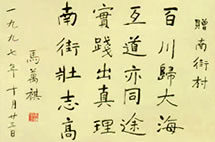 贈南街村
百川歸大海
亙道亦同途
實踐出真理
南街壯志高
馬萬祺
一九九七年十月廿三日